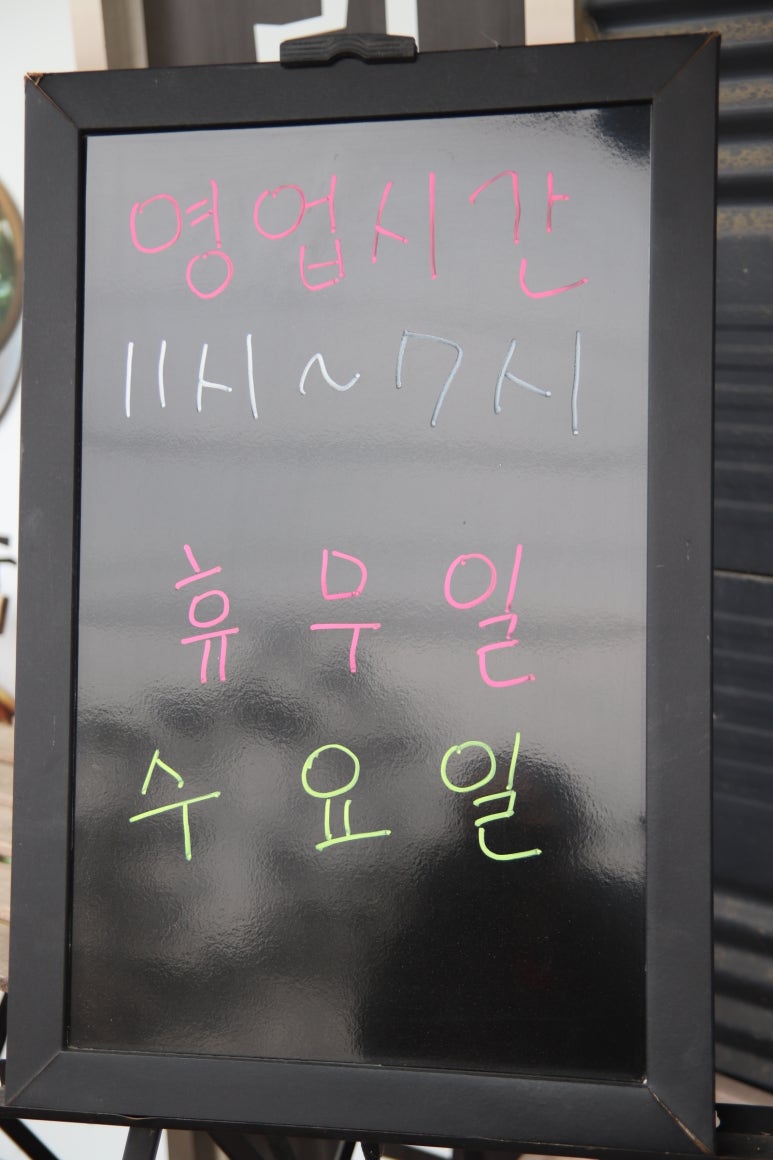 영업시간
11시~7시
휴무일
수요일